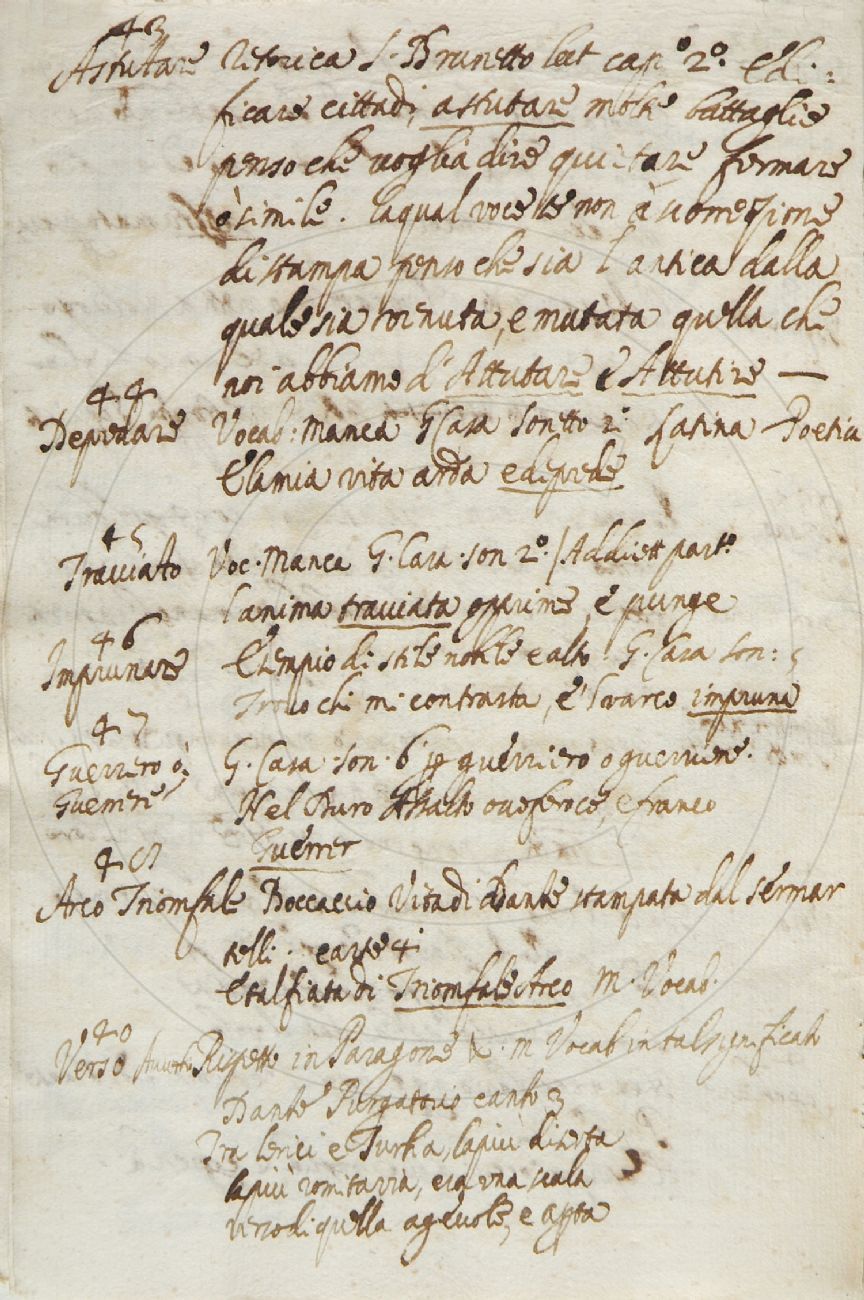 43
Astutare Retorica S. Brunetto lat cap.º 2.º Edi:
ficare cittadi, astutare molte battaglie
penso che voglia dire quietare fermare
ò simile. la qual voce se non è scorrezione
di stampa penso che sia l'antica dalla
quale sia venuta, e mutata quella che
noi abbiamo d'Attutare e Attutire —
44
Depredare Vocab: manca G Casa Sonetto 2: Latina Poetica
E la mia vita arda e deprede
45
Travviato Voc. Manca G. Casa. son 2.º / Addiett part.º
l'anima travviata opprime, e punge
46
Imprunare Esempio di stile nobile e alto. G. Casa son: 5
Trovo chi mi contrasta, e 'l varco impruna
47
Guerrero ò G. Casa. son. 6 p guerriero o guerriere.
Guerrere Nel Duro Assalto ove feroce, e franco
Guerrer
48
Arco Trionfale Boccaccio Vita di Dante stampata dal Sermar
telli. carte 4:
E tal fiata di Trionfale Arco M. Vocab.
49
Verso Rispetto in Paragone &. m Vocab in tal significato
Dante Purgatorio canto 3
Tra lerici e Turbia, la più diserta
la più romita via, era una scala
verso di quella agevole, e aperta